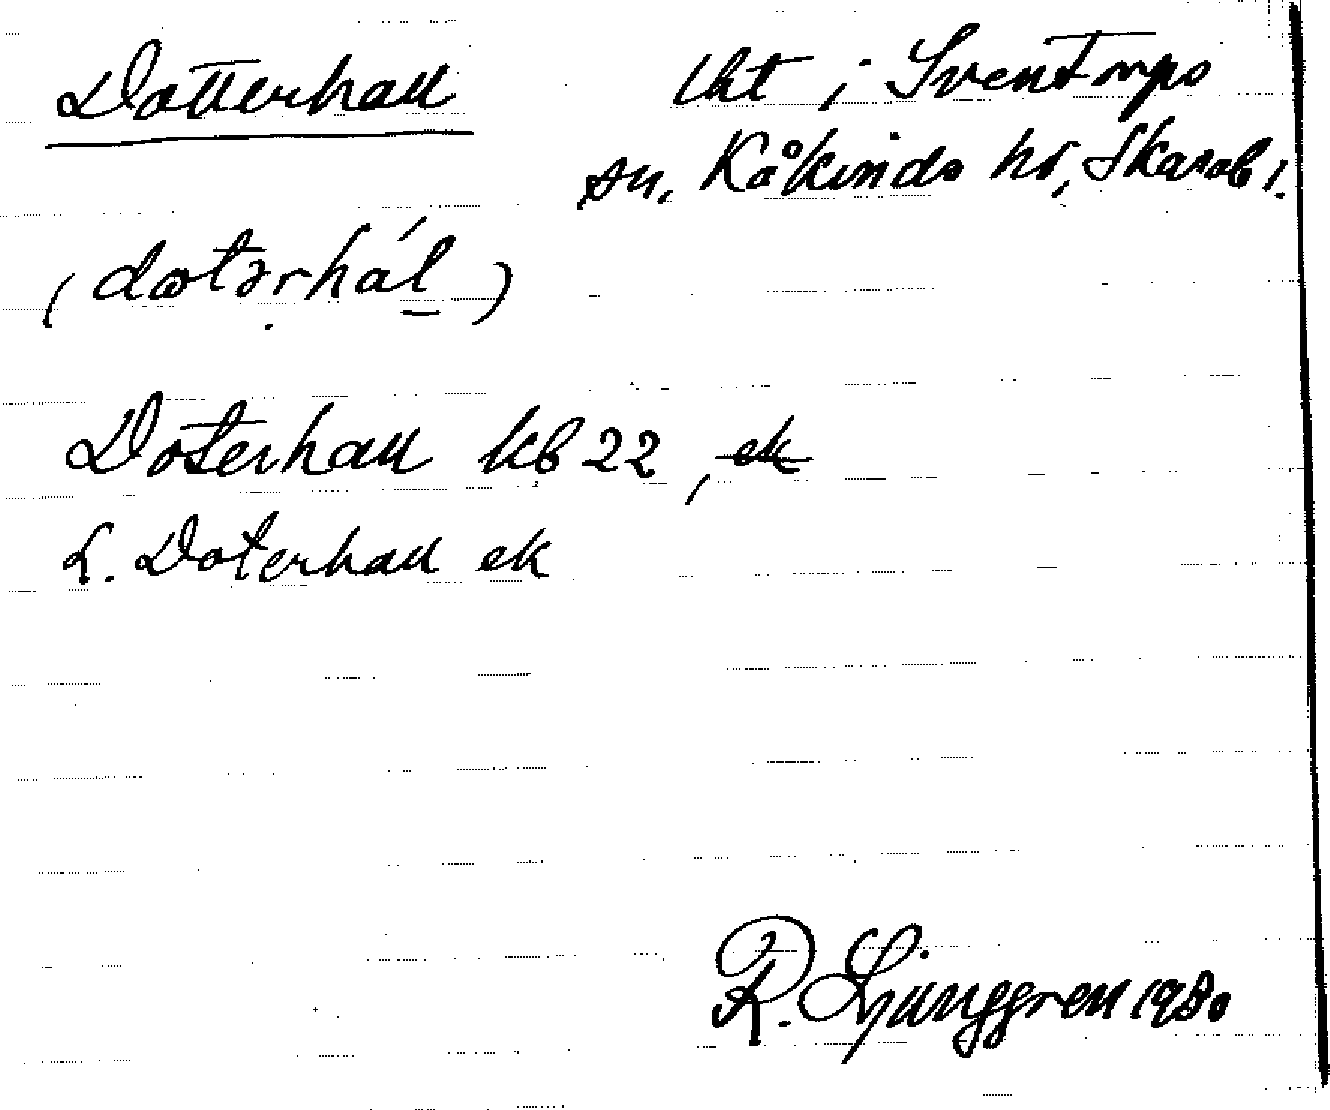 Dotterhall
lht i Sventorps
sn, Kåkinds hd, Skarab l.
(dotərhál)
Doterhall kb 22, ek
L. Doterhall ek
R. Ljunggren 1980